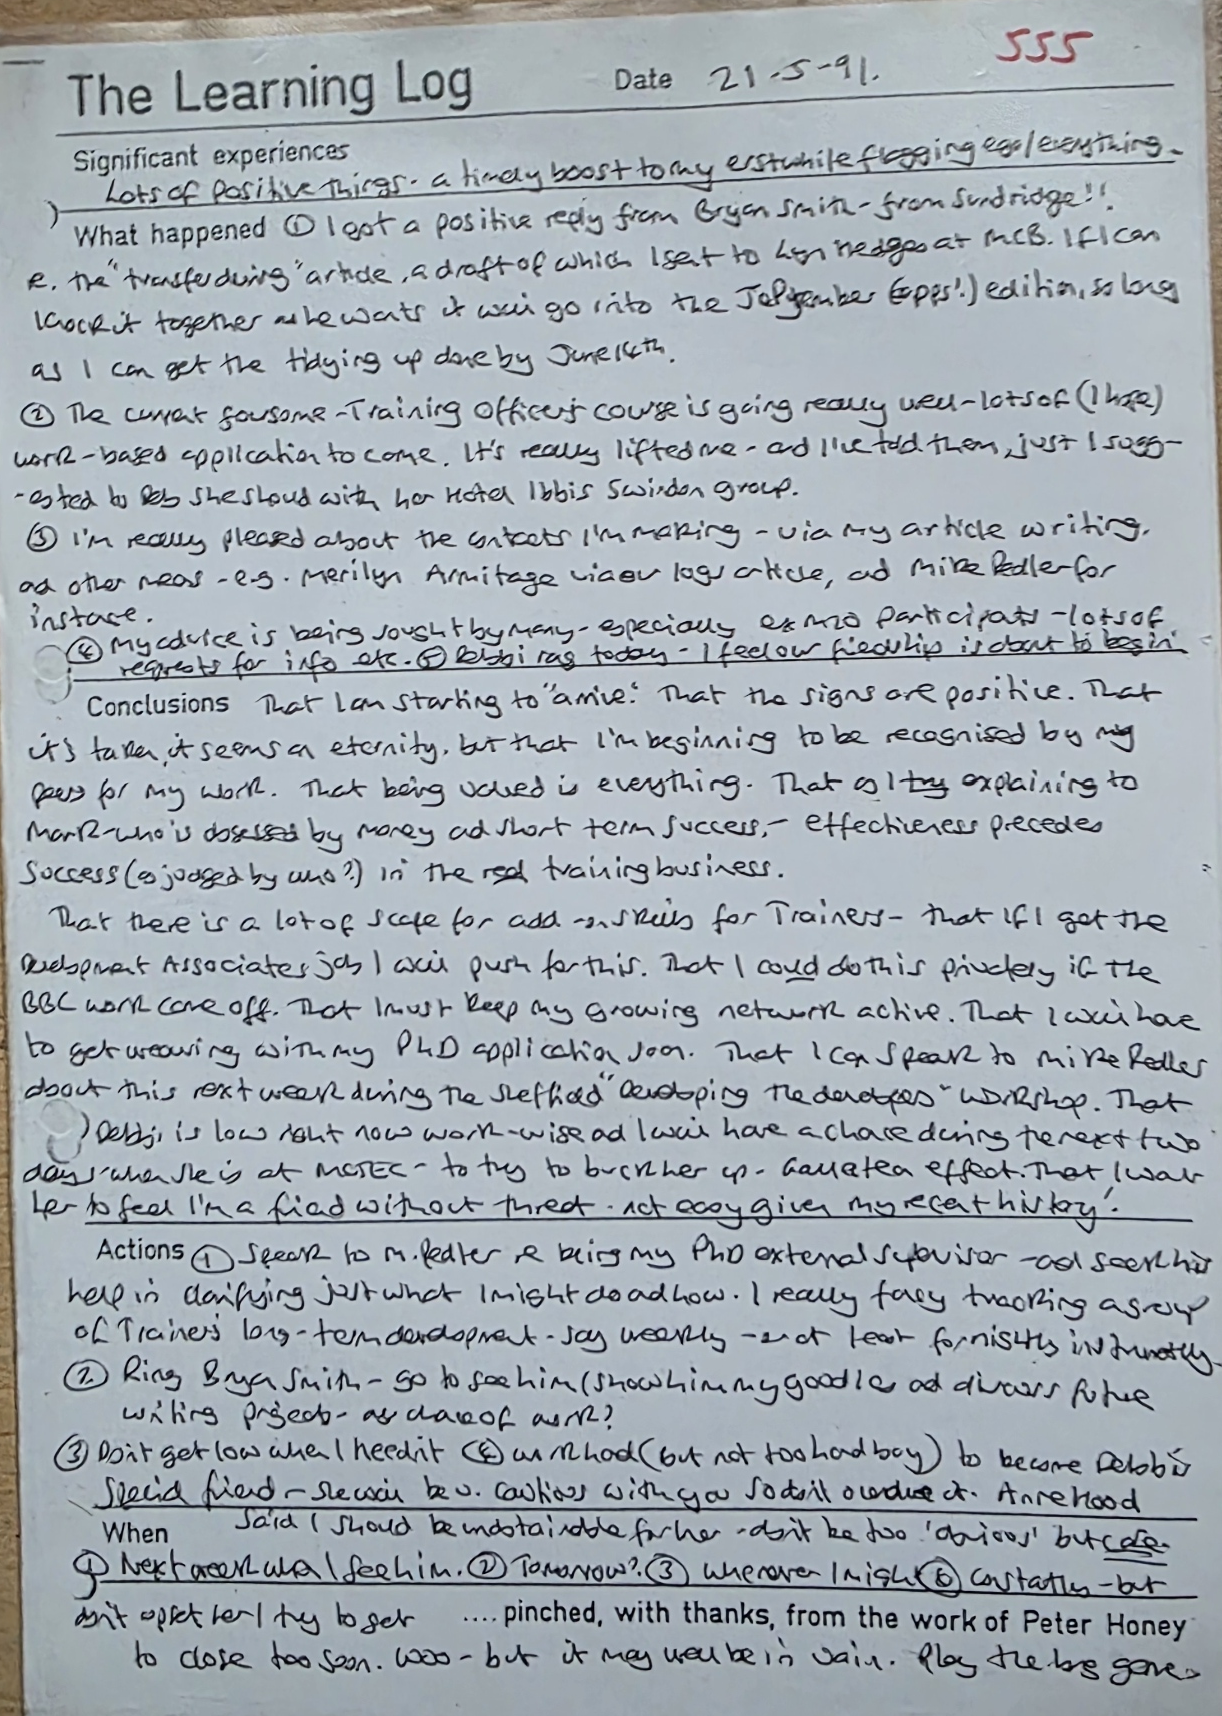 555
The Learning Log Date 21-5-91.
Significant experiences
Lots of positive things - a timely boost to my erstwhile flagging ego/everything.
What happened ① I got a positive reply from Bryan Smith - from Sundridge!!
re. the "transfer during" article, a draft of which I sent to Lyn Hedges at MCB. If I can
knock it together as he wants it will go into the (opps!) edition, so long
as I can get the tidying up done by June 14th.
② The current foursome - Training Officers course is going really well - lots of (I hope)
work-based application to come. It's really lifted me - and I've told them, just I sugg-
-ested to Deb she should with her Hotel Ibbis Swindon group.
③ I'm really pleased about the contacts I'm making - via my article writing,
and other means - e.g. Merilyn Armitage via our logs article, and Mike Pedler for
instance.
④ My advice is being sought by many - especially ex participants - lots of
requests for info etc. ⑤ Debbi rang today - I feel our friendship is about to begin.
Conclusions That I am starting to "arrive". That the signs are positive. That
it's taken, it seems an eternity, but that I'm beginning to be recognised by my
peers for my work. That being valued is everything. That as I try explaining to
Mark - who's obsessed by money and short term success, - effectiveness precedes
success (as judged by who?) in the real training business.
That there is a lot of scope for add-on skills for Trainers - that if I get the
Development Associates job I will push for this. That I could do this privately if the
BBC work came off. That I must keep my growing network active. That I will have
to get weaving with my PhD application soon. That I can speak to Mike Pedler
about this next week during the Sheffield "Developing the developers" workshop. That
Debbi, is low right now work-wise and I will have a chance during the next two
days when she is at MCTEC - to try to buck her up - Galatea effect. That I want
her to feel I'm a friend without threat - not easy given my recent history!
Actions ① Speak to M. Pedler re being my PhD external supervisor - and seek his
help in clarifying just what I might do and how. I really fancy tracking a group
of Trainers long-term development - say weekly - or at least fortnightly
② Ring Bryan Smith - go to see him (show him my goodies and discuss future
writing projects - as chance of work?
③ Don't get low when I need it ④ work hard (but not too hard boy) to become Debbi's
special friend - she will be v. cautious with you so don't overdue it. Anne Hood
When said I should be unobtainable for her - don't be too 'obvious' but care.
① Next week when I see him. ② Tomorrow? ③ Whenever I might ⑥ Constantly - but
don't upset her / try to get .... pinched, with thanks, from the work of Peter Honey
to close too soon. Woo - but it may well be in vain. Play the long game.